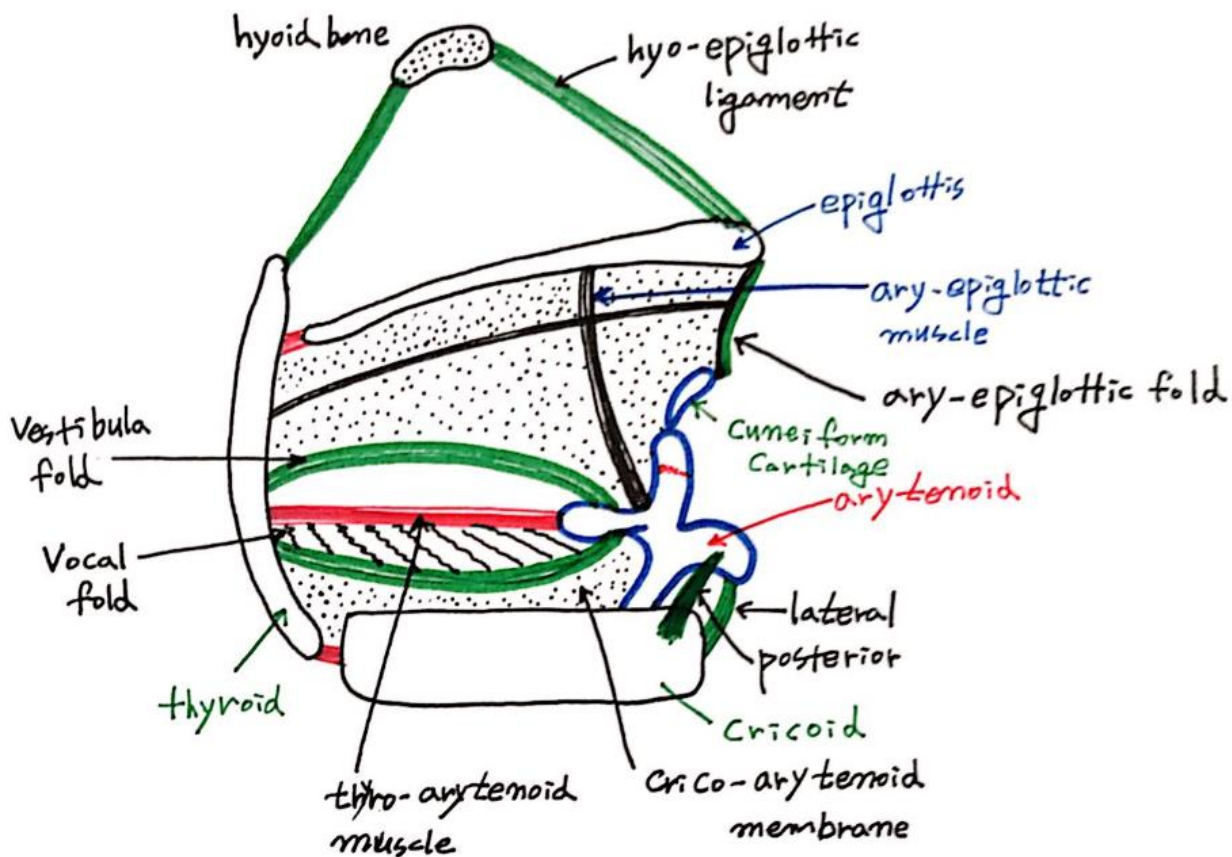 hyoid bone
hyo-epiglottic
ligament
epiglottis
ary-epiglottic
muscle
ary-epiglottic fold
cuneiform
cartilage
arytenoid
Vestibula
fold
Vocal
fold
lateral
posterior
thyroid
cricoid
thyro-arytenoid
muscle
crico-arytenoid
membrane